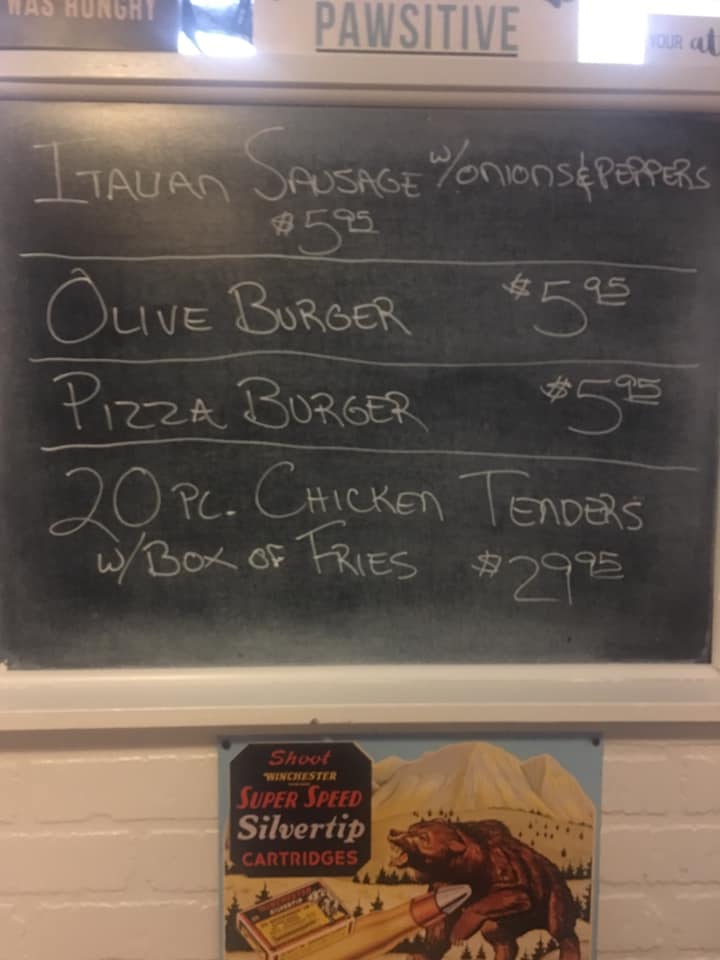 WAS HUNGRY
PAWSITIVE
YOUR at
ITALIAN SAUSAGE w/ONIONS&PEPPERS
$5.95
OLIVE BURGER $5.95
PIZZA BURGER $5.95
20 PC. CHICKEN TENDERS
w/BOX OF FRIES $29.95
Shoot
WINCHESTER
SUPER SPEED
Silvertip
CARTRIDGES
SILVERTIP